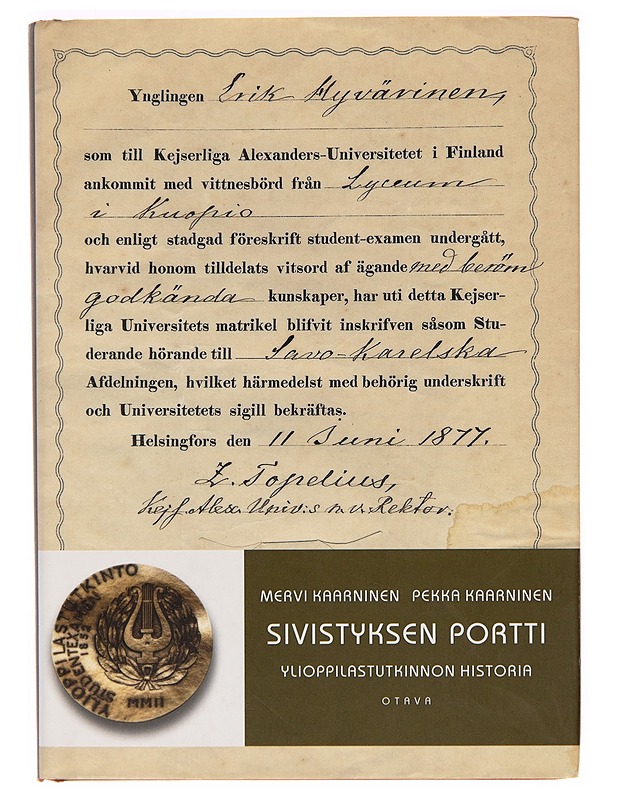 Ynglingen Erik Hyvärinen,
som till Kejserliga Alexanders-Universitetet i Finland
ankommit med vittnesbörd från Lyceum
i Kuopio
och enligt stadgad föreskrift student-examen undergått,
hvarvid honom tilldelats vitsord af ägande med beröm
godkända kunskaper, har uti detta Kejser-
liga Universitets matrikel blifvit inskrifven såsom Stu-
derande hörande till Savo-Karelska
Afdelningen, hvilket härmedelst med behörig underskrift
och Universitetets sigill bekräftas.
Helsingfors den 11 Juni 1877.
Z. Topelius,
Kejs. Alex. Univ:s n. v. Rektor.
YLIOPPILASTUTKINTO
STUDENTEXAMEN
1852
MMII
MERVI KAARNINEN PEKKA KAARNINEN
SIVISTYKSEN PORTTI
YLIOPPILASTUTKINNON HISTORIA
OTAVA